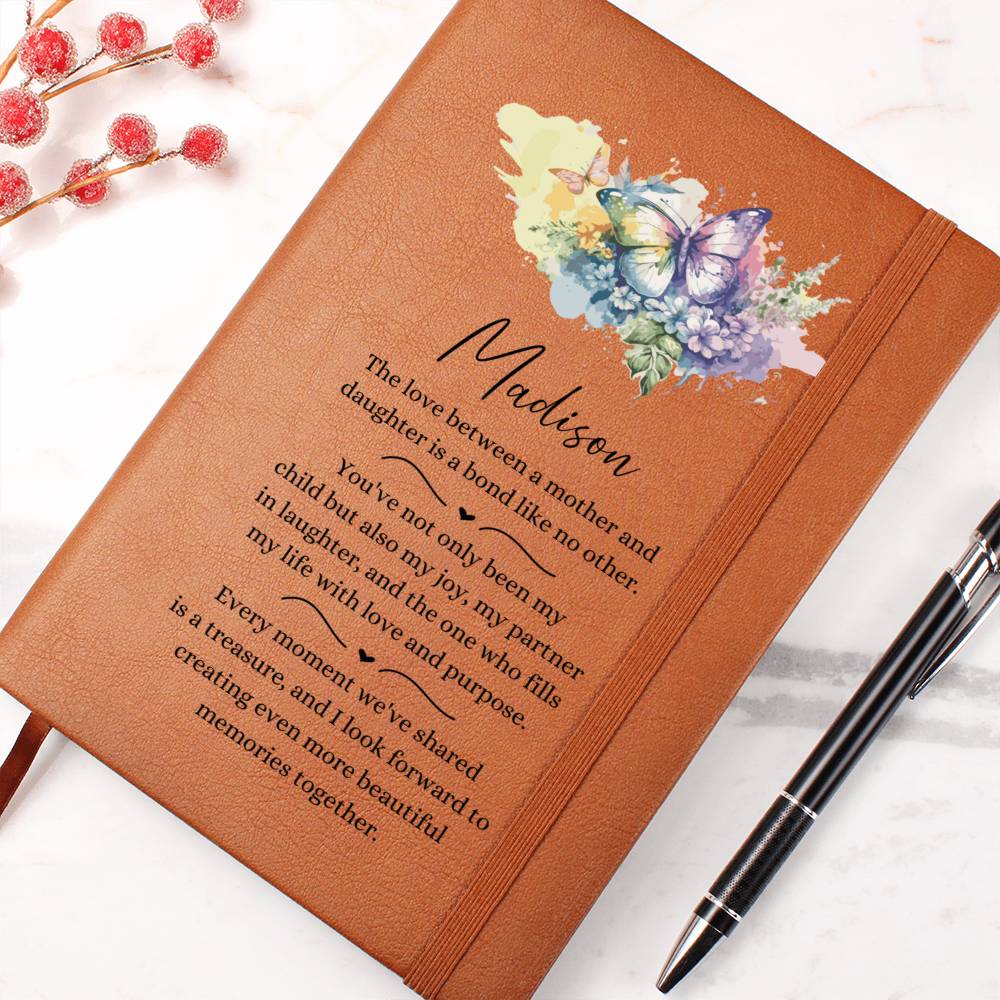 Madison
The love between a mother and
daughter is a bond like no other.
You've not only been my
child but also my joy, my partner
in laughter, and the one who fills
my life with love and purpose.
Every moment we've shared
is a treasure, and I look forward to
creating even more beautiful
memories together.